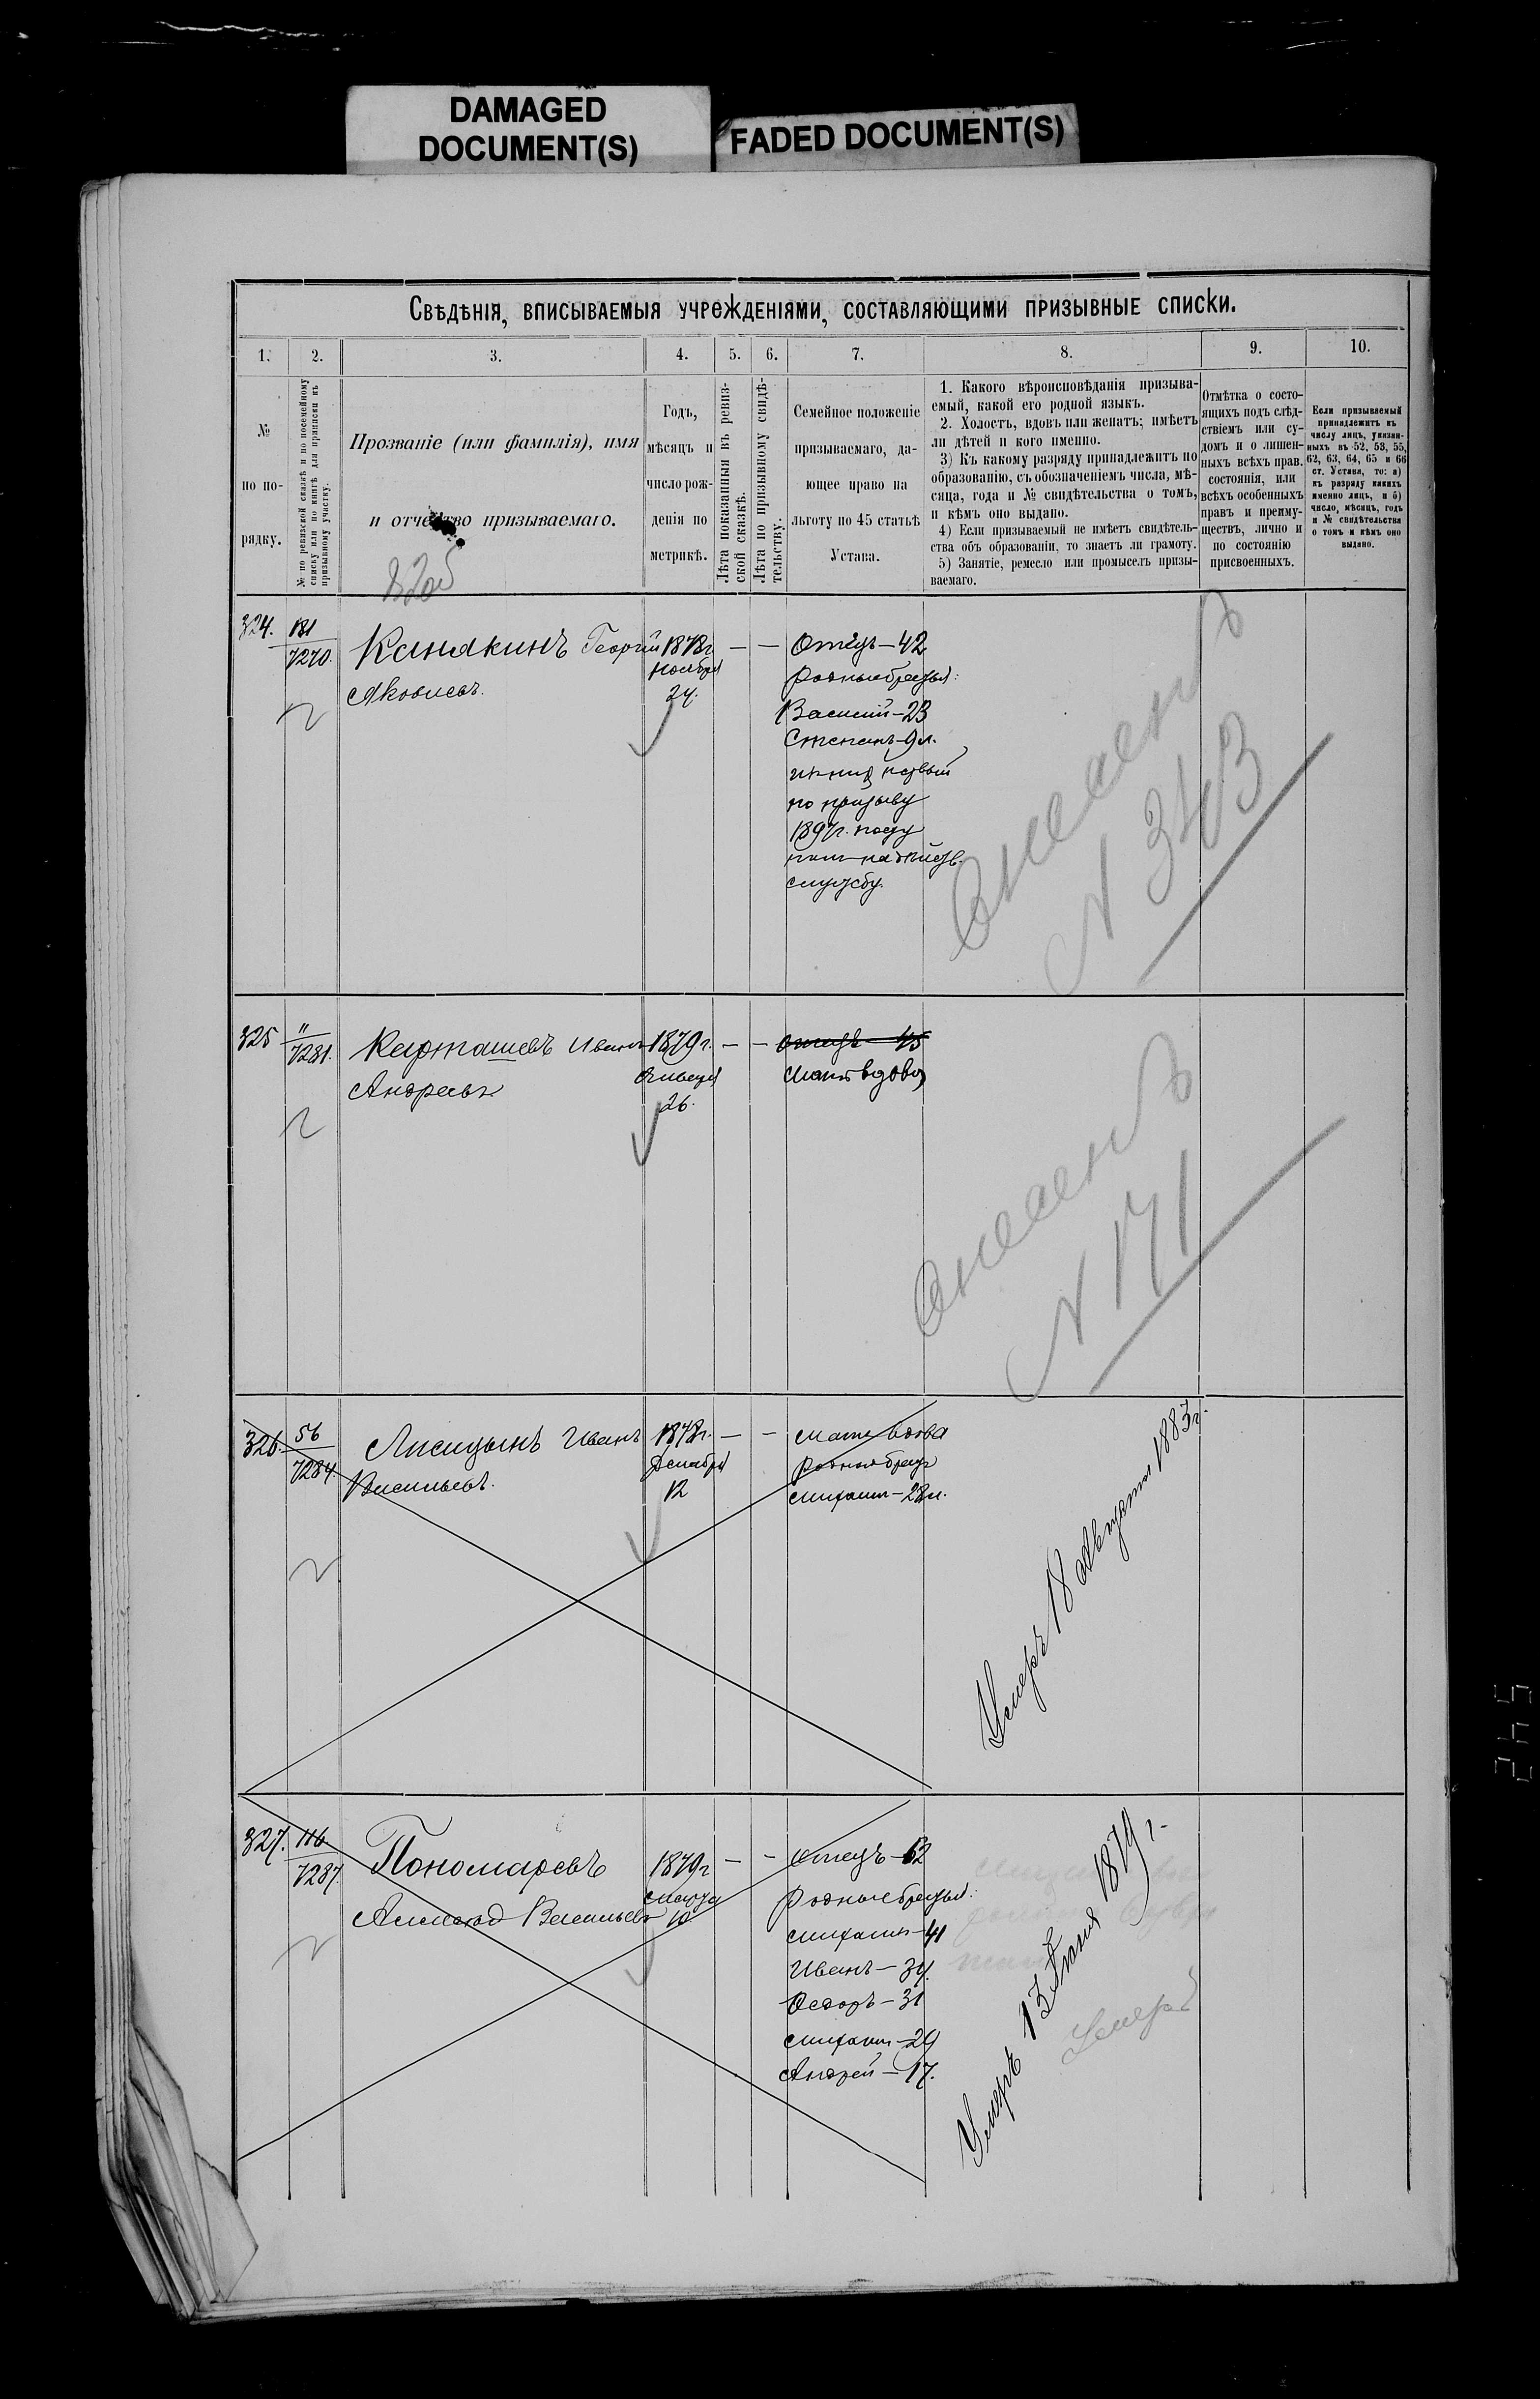 DAMAGED
DOCUMENT(S)
FADED DOCUMENT(S)
Свѣдѣнія, вписываемыя учрежденіями, составляющими призывные списки.
1. 2. 3. 4. 5. 6. 7. 8. 9. 10.
№
по по-
рядку.
№ по ревизской сказкѣ и по посемейному
списку или по книгѣ для приписки къ
призывному участку.
Прозваніе (или фамилія), имя
и отчество призываемаго.
Годъ,
мѣсяцъ и
число рож-
денія по
метрикѣ.
Лѣта показанныя въ ревиз-
ской сказкѣ.
Лѣта по призывному свидѣ-
тельству.
Семейное положеніе
призываемаго, да-
ющее право на
льготу по 45 статьѣ
Устава.
1. Какого вѣроисповѣданія призыва-
емый, какой его родной языкъ.
2. Холостъ, вдовъ или женатъ; имѣетъ
ли дѣтей и кого именно.
3) Къ какому разряду принадлежитъ по
образованію, съ обозначеніемъ числа, мѣ-
сяца, года и № свидѣтельства о томъ,
и кѣмъ оно выдано.
4) Если призываемый не имѣетъ свидѣтель-
ства объ образованіи, то знаетъ ли грамоту.
5) Занятіе, ремесло или промыселъ призы-
ваемаго.
Отмѣтка о состо-
ящихъ подъ слѣд-
ствіемъ или су-
домъ и о лишен-
ныхъ всѣхъ прав.
состоянія, или
всѣхъ особенныхъ
правъ и преиму-
ществъ, лично и
по состоянію
присвоенныхъ.
Если призываемый
принадлежитъ къ
числу лицъ, указан-
ныхъ въ 52, 53, 55,
62, 63, 64, 65 и 66
ст. Устава, то: а)
къ разряду какихъ
именно лицъ, и б)
число, мѣсяцъ, годъ
и № свидѣтельства
о томъ и кѣмъ оно
выдано.
324. 181 7270.
Канакинъ Георгій
Яковлевъ.
1878г
Ноября
24.
— —
Отецъ—42
родные братья:
Василій—23
Степанъ—9л.
первый
по призыву
1897г.
службу.
Внесенъ
N 343
325 11 7281.
Карташевъ Иванъ
Андреевъ
1879г.
Января
26.
— —
отецъ 45
Мать вдова
Внесенъ
N 171
326. 56 7284.
Лисицынъ Иванъ
Васильевъ.
1878г.
Декабря
12
— —
мать вдова
родной братъ
Михаилъ—28л.
Умеръ 18 Августа 1883г.
327. 116 7287.
Пономаревъ
Васильевъ
1879г
Марта
10
— —
Отецъ—62
Родные братья:
Михаилъ—41
Иванъ—34.
Ѳедоръ—31
Михаилъ—24
Андрей—17.
Умеръ 13 Іюня 1879г.
Умеръ
542